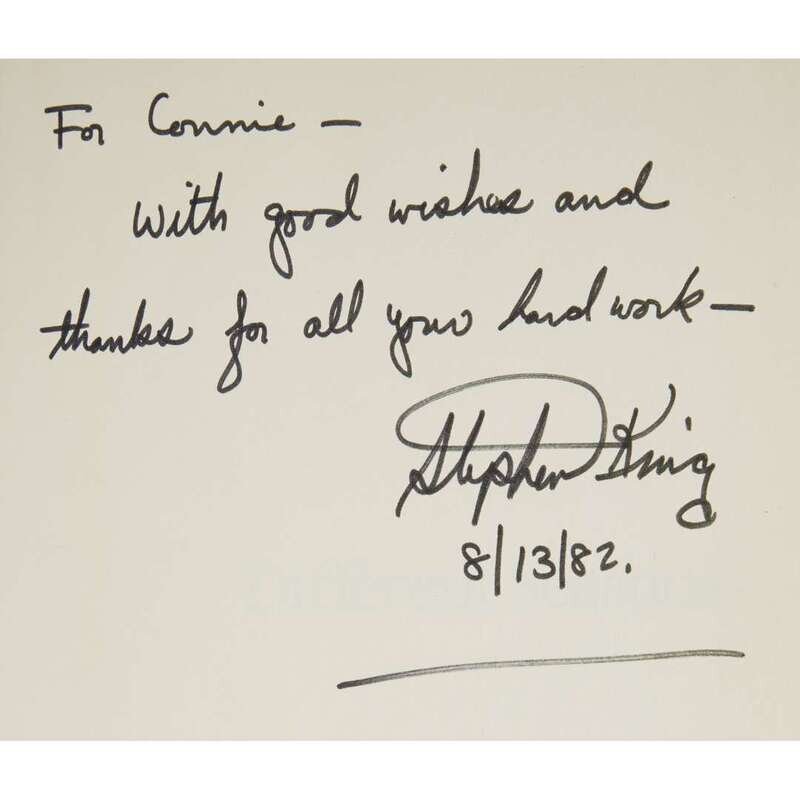 For Connie —
With good wishes and
thanks for all your hard work —
Stephen King
8/13/82.